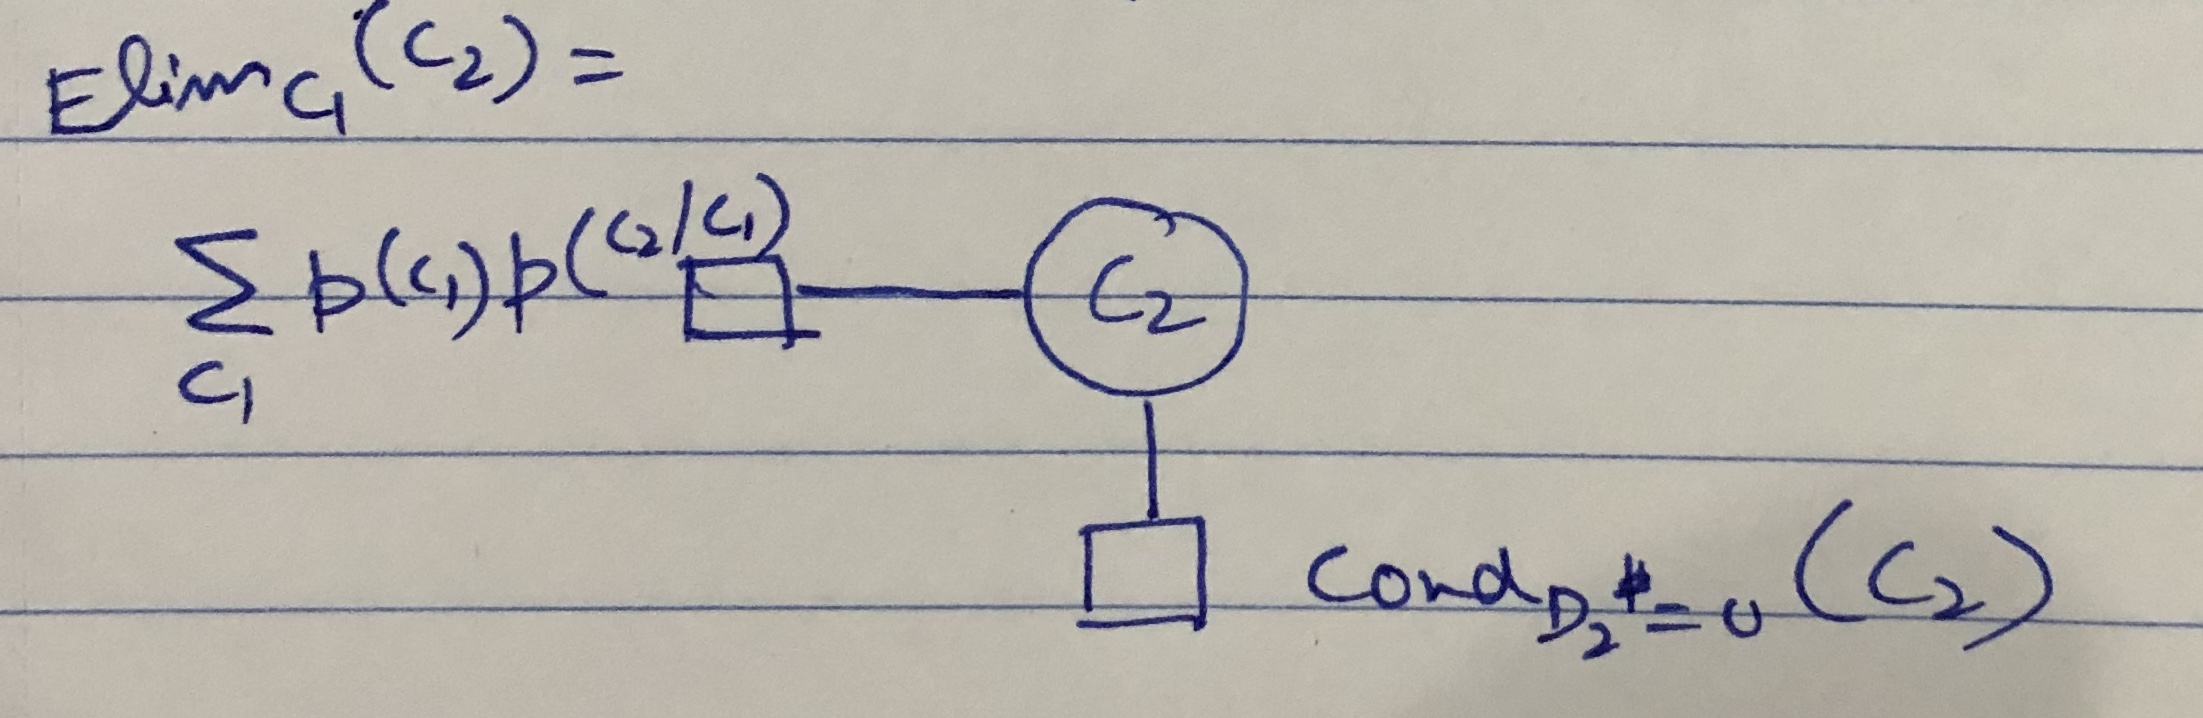 Elim_{C_1}(C_2) =
\sum_{C_1} p(C_1) p(C_2/C_1)
C_2
Cond_{D_2=0}(C_2)